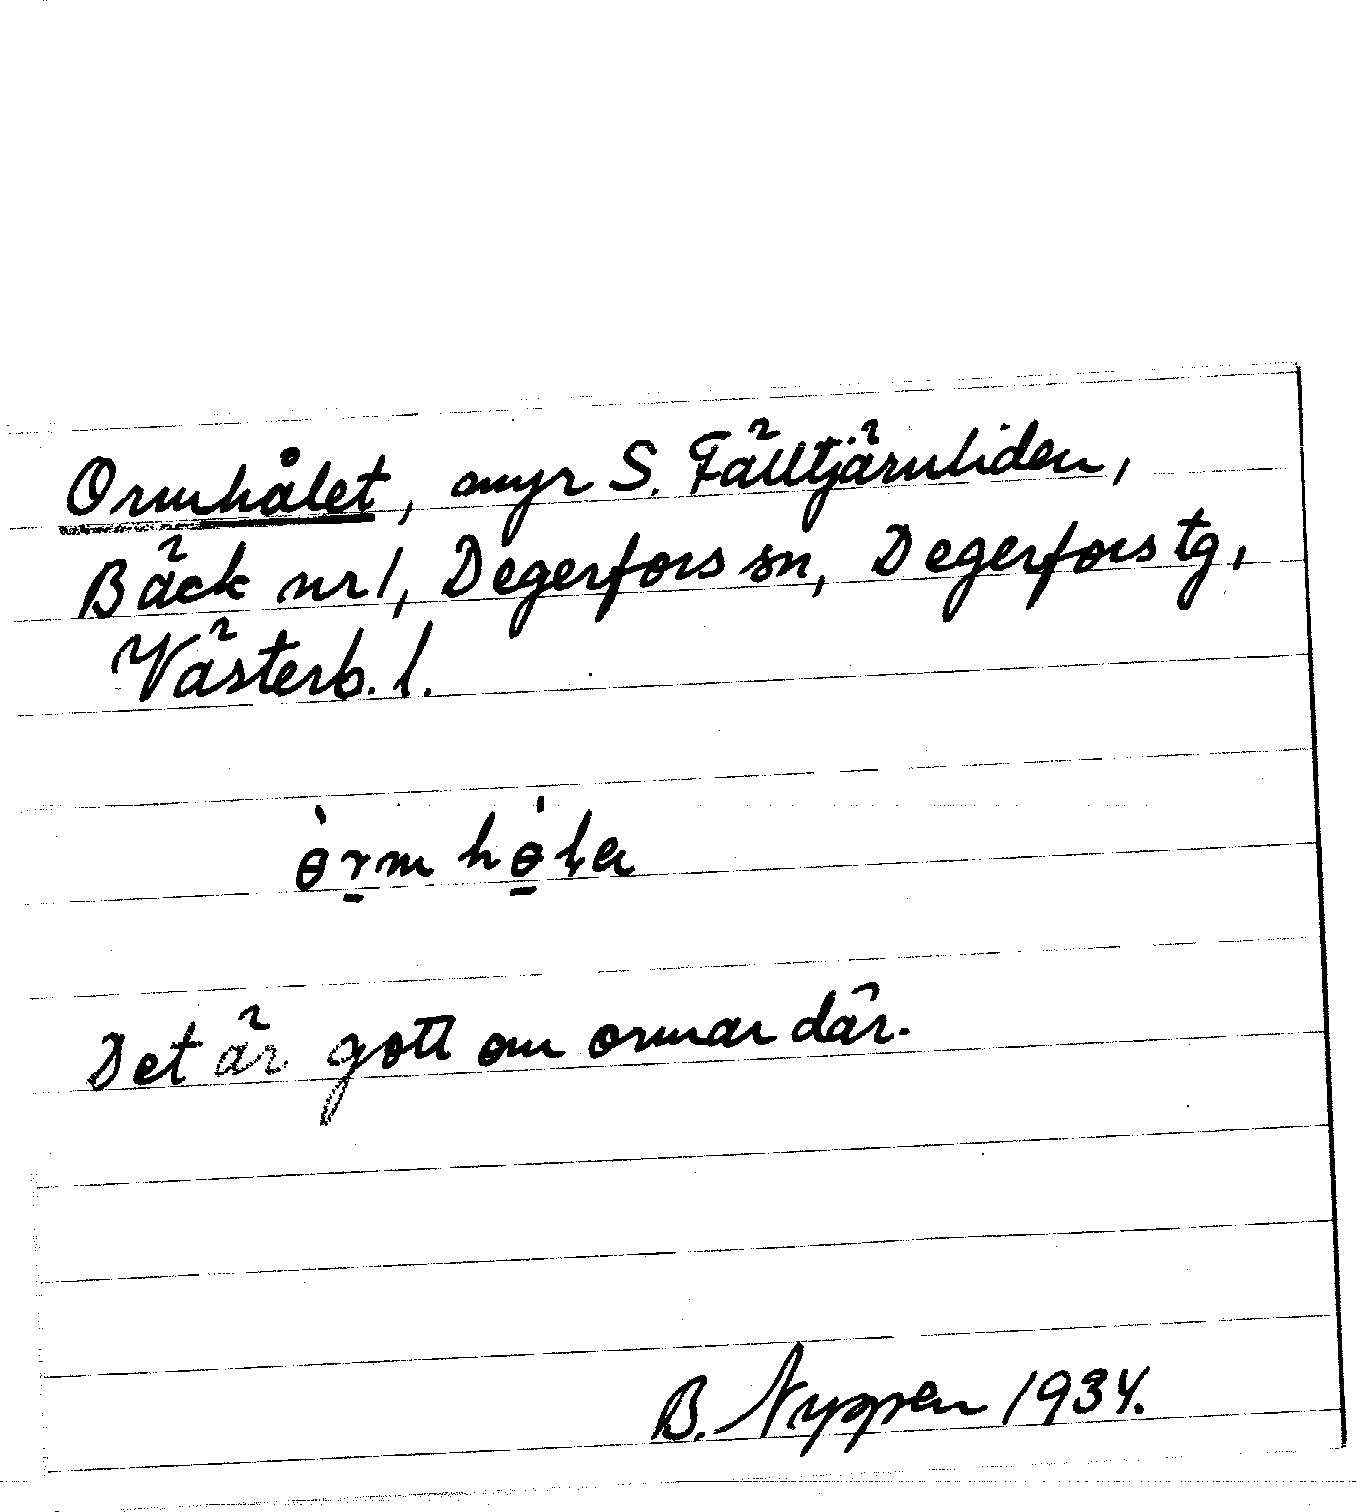 Ormhålet, myr S. Fälltjärnliden,
Bäck nr 1, Degerfors sn, Degerfors tg,
Västerb. l.
ɵ̀r̲m hɵ̲́ła
Det är gott om ormar där.
B. Nygren 1934.